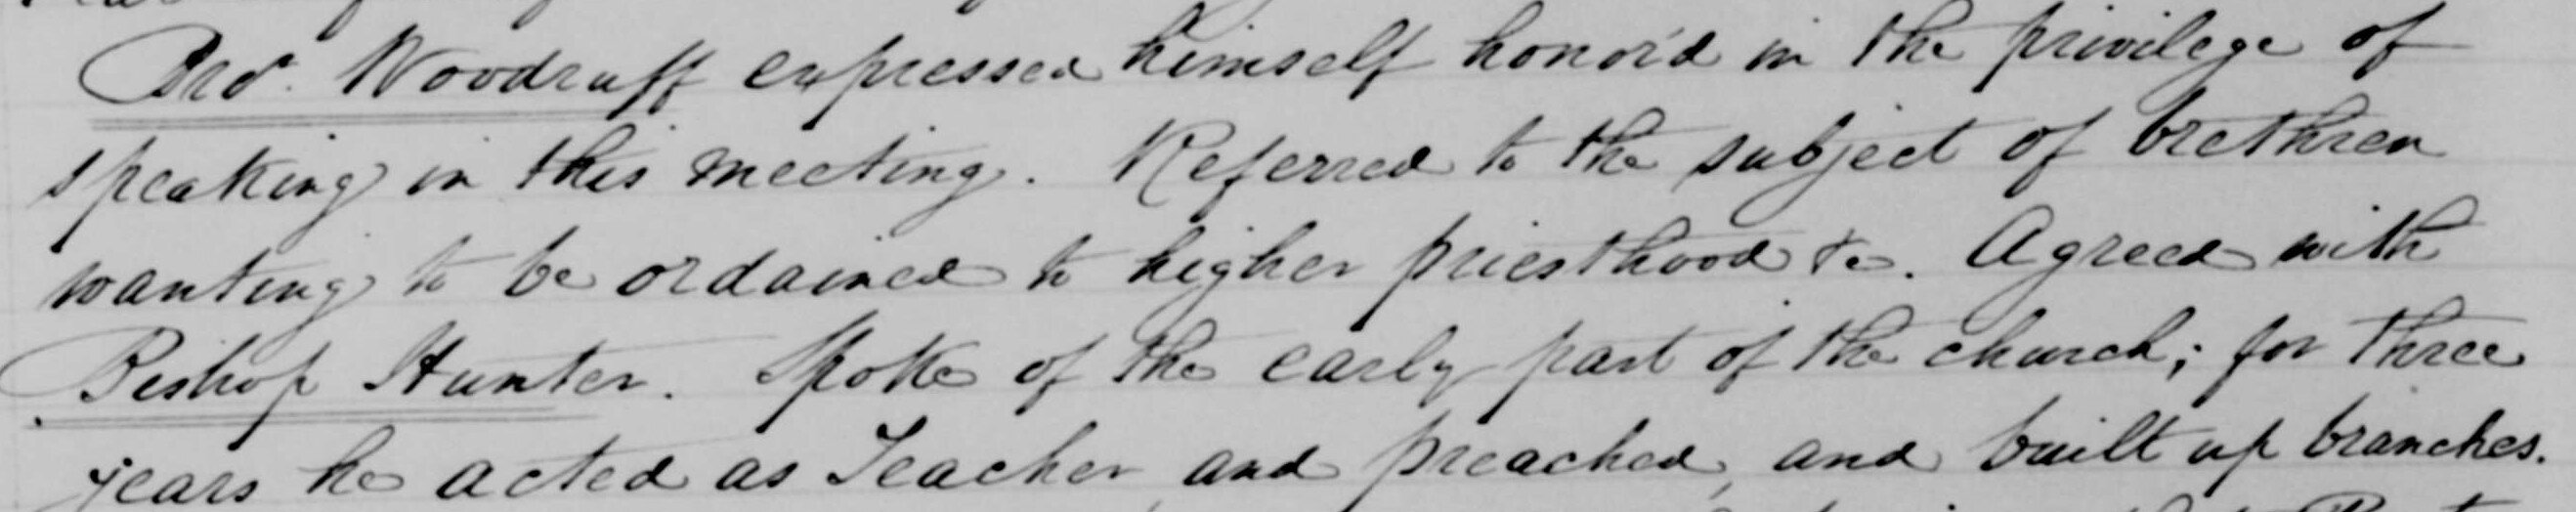 Bro. Woodruff expressed himself honor'd in the privilege of
speaking in this meeting. Referred to the subject of brethren
wanting to be ordained to higher priesthood &c. Agreed with
Bishop Hunter. Spoke of the early part of the church; for three
years he acted as Teacher, and preached, and built up branches.